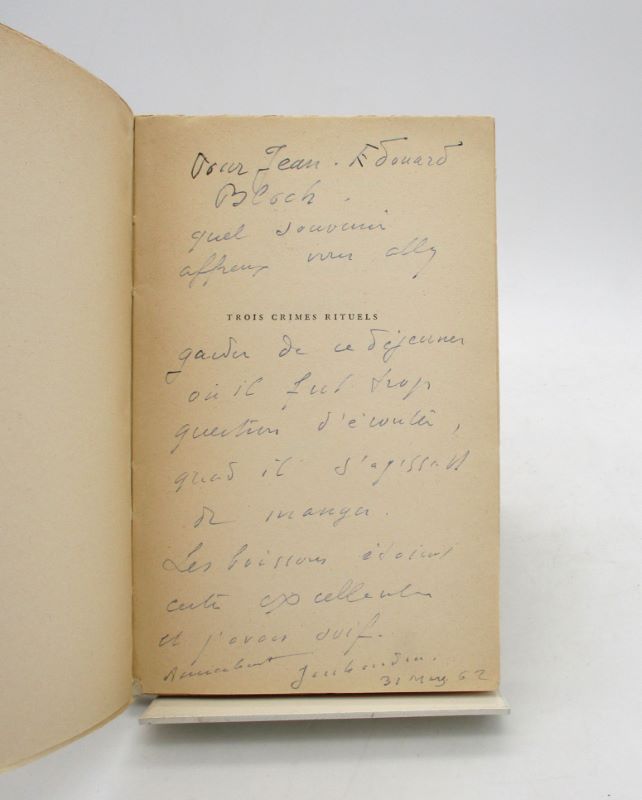 Pour Jean-Edouard
Bloch.
quel souvenir
affreux vous allez
TROIS CRIMES RITUELS
garder de ce déjeuner
où il fut trop
question d'écouter,
quand il s'agissait
de manger.
Les boissons étaient
certes excellentes
et j'avais soif.
Jouhandeau.
31 Mars 62